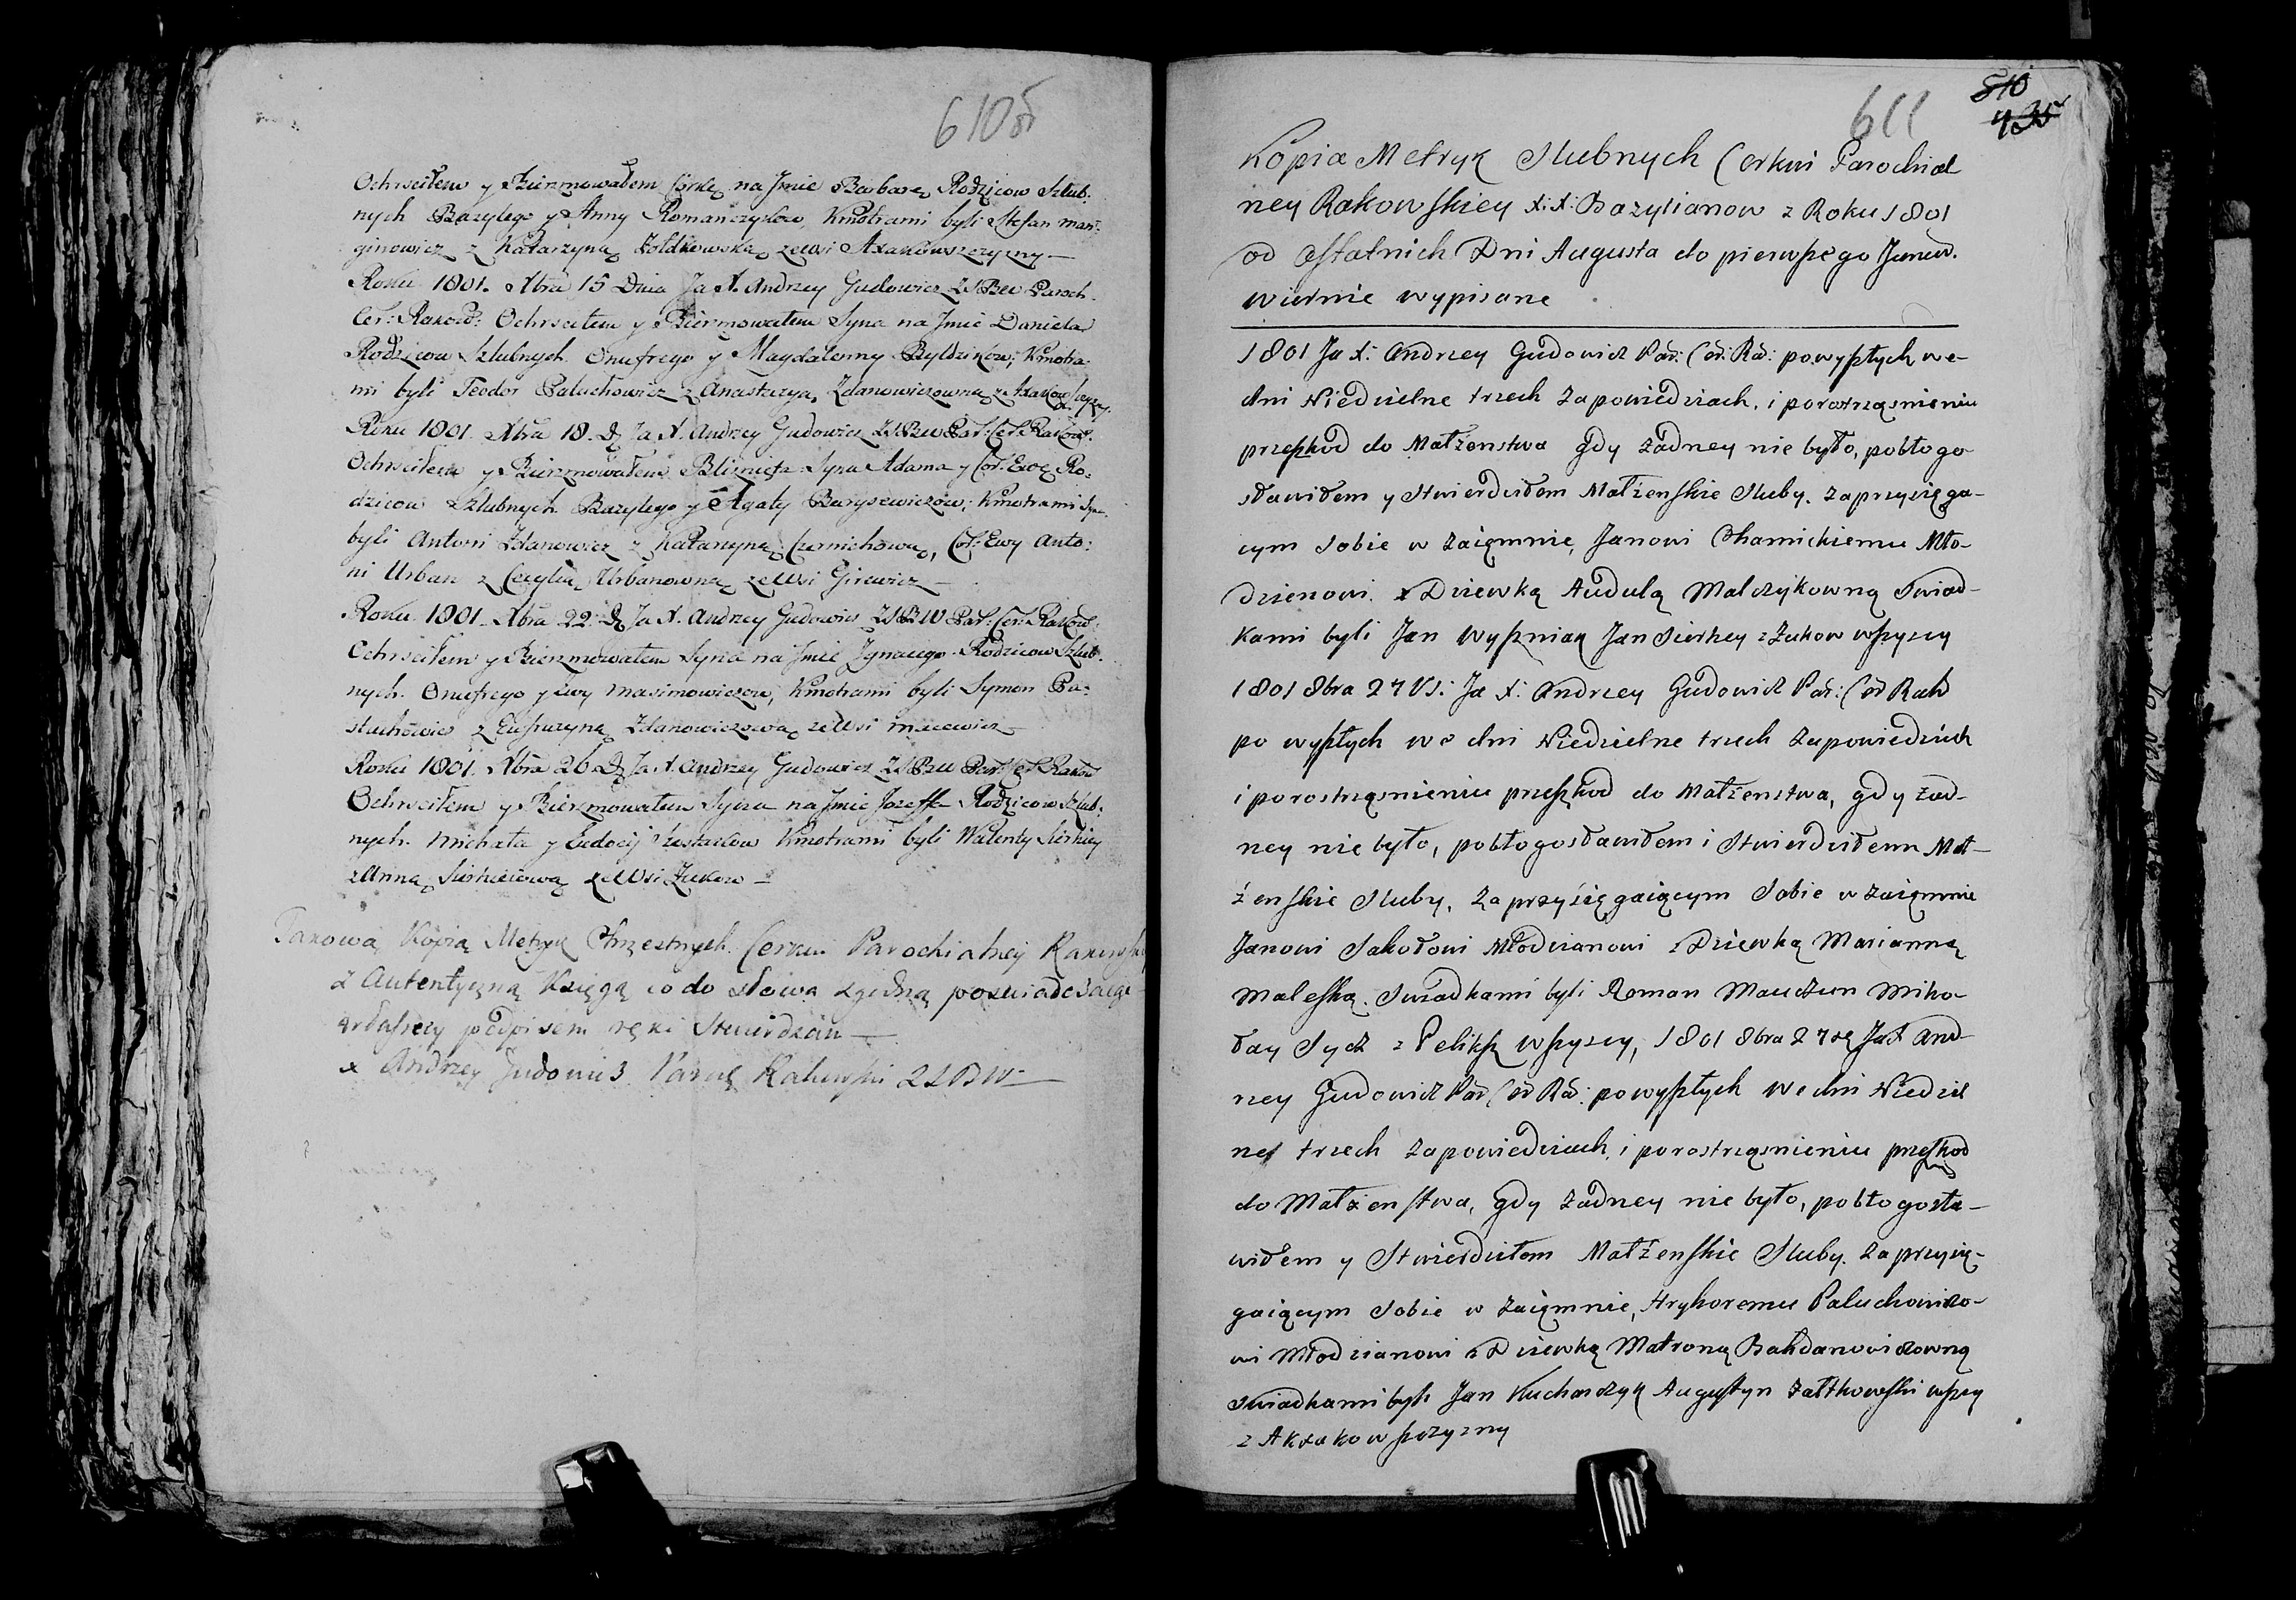 610 об
Ochrsciłem y Bierzmowałem Corkę na Jmie Barbarę Rodzicow Szlub:
nych Bazylego y Anny Romanczykow, Kmotrami byli Stefan
ginowicz z Katarzyną Żołdkowską ze Wsi Axakowszczyzny
Roku 1801. Xbra 15 Dnia Ja X. Andrzey Gudowicz ZSBW Paroch.
Cer: Rakow: Ochrsciłem y Bierzmowałem Syna na Jmie Daniela
Rodzicow Szlubnych Onufrego y Magdaleny Byldzików; Kmotra:
mi byli Teodor Paluchowicz z Anastazyą Zdanowiczowną z Axakowszczyz.
Roku 1801. Xbra 18. D. Ja X. Andrzey Gudowicz ZSBW Par: Cer: Rakow:
Ochrsciłem y Bierzmowałem Bliznięta Syna Adama y Cor: Ewę Ro:
dzicow Szlubnych Bazylego y Agaty Borysewiczów; Kmotrami Syn.
byli Antoni Zdanowicz z Katarzyną Czernichową, Cor: Ewy Anto:
ni Urban z Cecylią Urbanowną ze Wsi Girewicz
Roku 1801. Xbra 22. D. Ja X. Andrzey Gudowicz ZSBW Par: Cer: Rakow:
Ochrsciłem y Bierzmowałem Syna na Jmie Jgnacego Rodzicow Szlub:
nych Onufrego y Ewy Maximowiczow, Kmotrami byli Symon Pa:
stuchowicz z Eufrozyną Zdanowiczową ze Wsi Macewicz
Roku 1801. Xbra 26 D. Ja X. Andrzey Gudowicz ZSBW Par: Cer: Rakow
Ochrsciłem y Bierzmowałem Syna na Jmie Jozeffa Rodzicow Szlub:
nych Michała y Eudocij Szostaków Kmotrami byli Walenty Sierkiey
z Anną Sierkieiową ze Wsi Zukow
Takową Kopią Metryk Chrzestnych Cerkwi Parochialney Rakowskiey
z Autentyczną Księgą co do słowa zgodną poswiadczaiąc
własney podpisem ręki Stwierdzam
X Andrzey Gudowicz Paroch Rakowski ZSBW
611
510
435
Kopia Metryk Slubnych Cerkwi Parochial
ney Rakowskiey X.X. Bazylianow z Roku 1801
od Ostatnich Dni Augusta do pierwszego Januar.
wiernie wypisane
1801 Ja X: Andrzey Gudowicz Par: Cer: Ra: po wyszłych we
dni Niedzielne trzech Zapowiedziach, i porostrząsnieniu
przeszkod do Małżenstwa gdy żadney nie było, pobłogo-
sławiłem y Stwierdziłem Małżenskie Sluby. Zaprzysięga-
cym Sobie w Zaięmnie, Janowi Chamickiemu Mło-
dzienowi. z Dziewką Audulą Malczykowną Swiad-
kami byli Jan Wyszniak Jan Sierkey z Zukow wszyscy
1801 8bra 27 V.S: Ja X: Andrzey Gudowicz Par: Cer Rak
po wyszłych we dni Niedzielne trzech Zapowiedziach
i porostrząsnieniu przeszkod do Małżenstwa, gdy żad-
ney nie było, pobłogosławiłem i Stwierdziłem Mał-
żenskie Sluby, Zaprzysięgaiącym Sobie w Zaięmnie
Janowi Sokołowi Młodzianowi z Dziewką Marianną
Maleską. Swiadkami byli Roman Mauczun Miko-
łay Sycz z Peliksz wszyscy, 1801 8bra 27 Ja X And-
rzey Gudowicz Par Cer Ra: po wyszłych we dni Niedziel
ne trzech Zapowiedziach, i porostrząsnieniu przeszkod
do Małżenstwa, gdy żadney nie było, pobłogosła-
wiłem y Stwierdziłem Małżenskie Sluby. Zaprzysię-
gaiącym Sobie w Zaięmnie, Hryhoremu Paluchowiczo-
wi Młodzianowi z Dziewką Matroną Bahdanowiczowną
Swiadkami byli Jan Kucharczyk Augustyn Załtkowski wszy
z Akxakowszczyzny